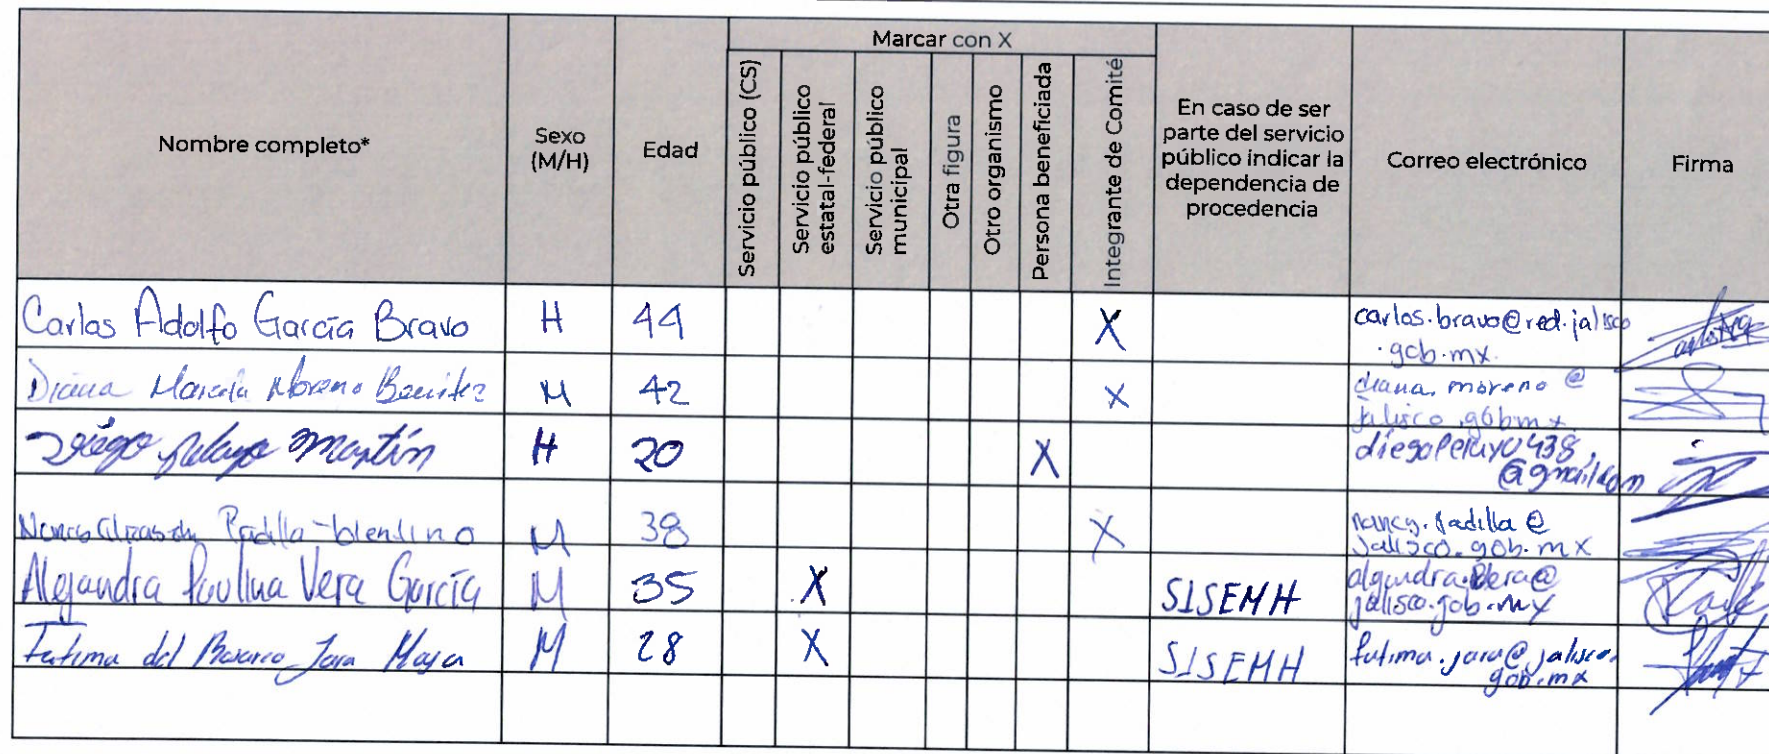 Marcar con X
Nombre completo*
Sexo
(M/H)
Edad
Servicio público (CS)
Servicio público
estatal-federal
Servicio público
municipal
Otra figura
Otro organismo
Persona beneficiada
Integrante de Comité
En caso de ser
parte del servicio
público indicar la
dependencia de
procedencia
Correo electrónico
Firma
Carlos Adolfo García Bravo H 44 X carlos.bravo@red.jalisco
.gob.mx
Diana Marcela Moreno Benitez M 42 X diana.moreno@
jalisco.gobmx
Diego Pelayo Martín H 20 X diegopelayo438
@gmail.com
Padilla M 38 X nancy.padilla@
jalisco.gob.mx
Alejandra Paulina Vera García M 35 X SISEMH
jalisco.gob.mx
Fatima del Jara Maya M 28 X SISEMH fatima.jara@jalisco.
gob.mx